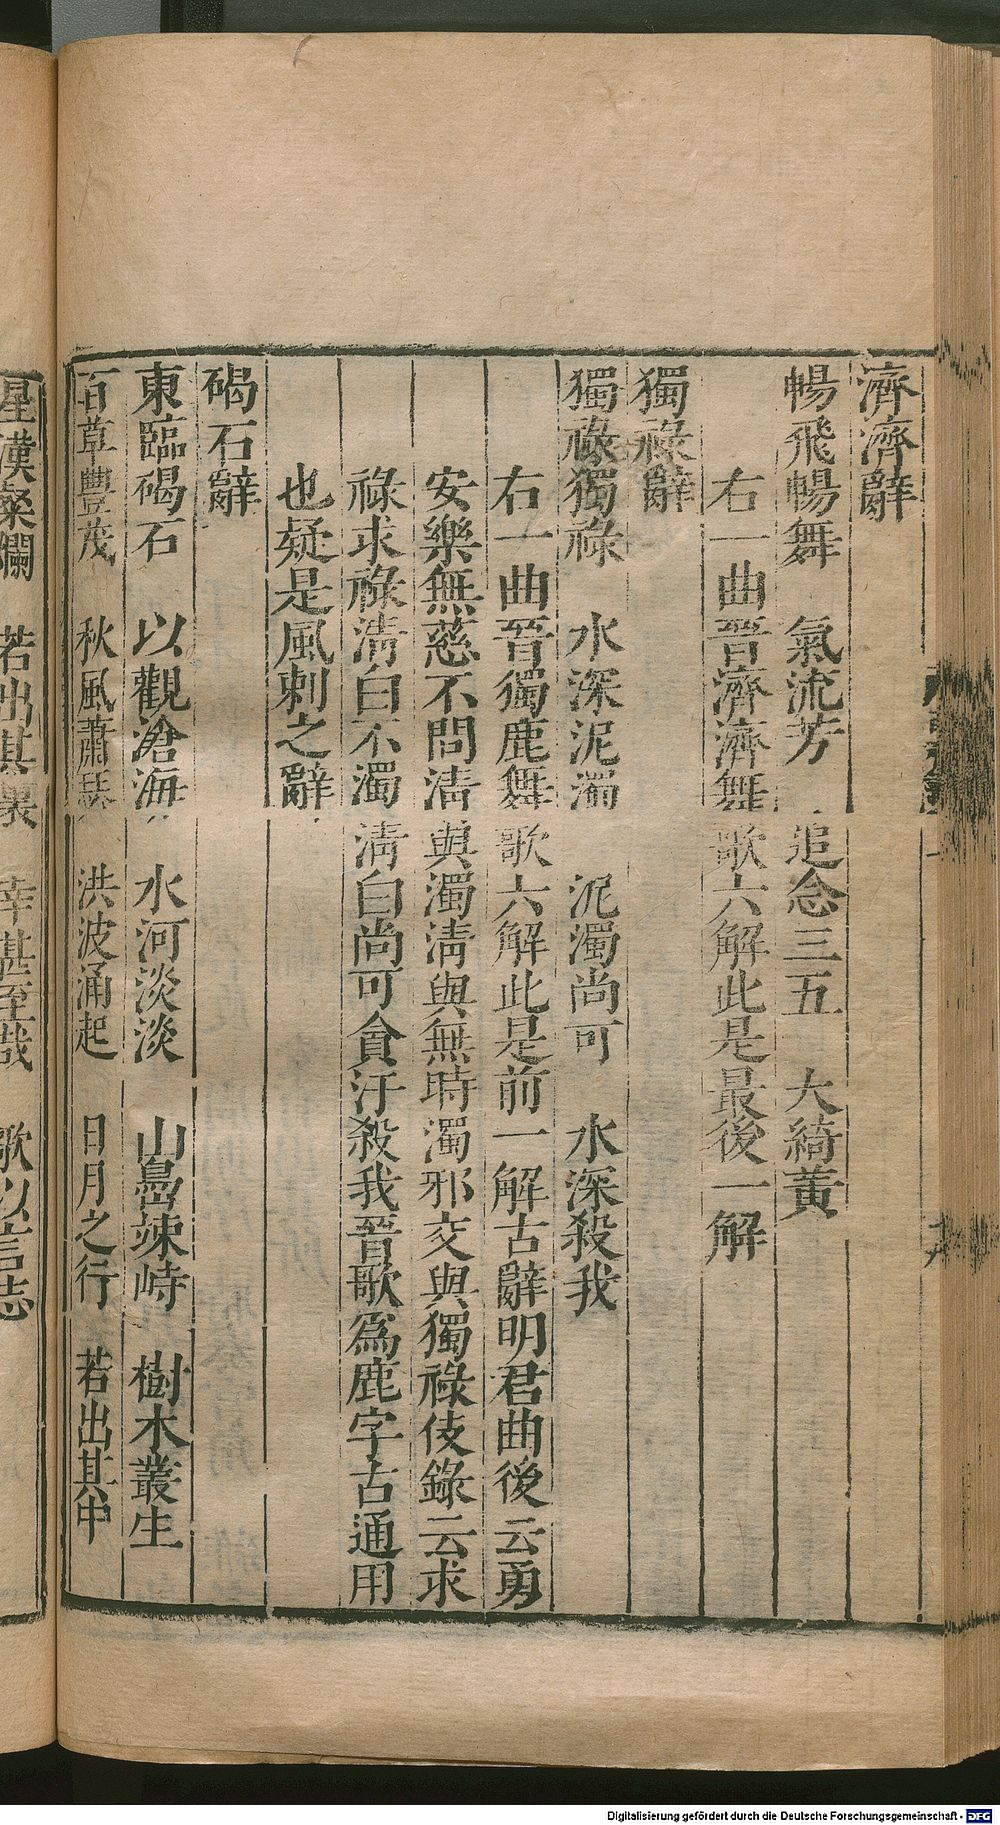 濟濟辭
暢飛暢舞　氣流芳　追念三五　大綺黃
右一曲晉濟濟舞歌六解此是最後一解
獨祿辭
獨祿獨祿　水深泥濁　泥濁尚可　水深殺我
右一曲晉獨鹿舞歌六解此是前一解古辭明君曲後云勇
安樂無慈不問清與濁清與無時濁邪交與獨祿伎錄云求
祿求祿清白不濁清白尚可貪汙殺我晉歌爲鹿字古通用
也疑是風刺之辭
碣石辭
東臨碣石　以觀滄海　水河淡淡　山嶋竦峙　樹木叢生
百草豐茂　秋風蕭瑟　洪波涌起　日月之行　若出其中
星漢粲爛　若出其裏　幸甚至哉　歌以言志
Digitalisierung gefördert durch die Deutsche Forschungsgemeinschaft - DFG